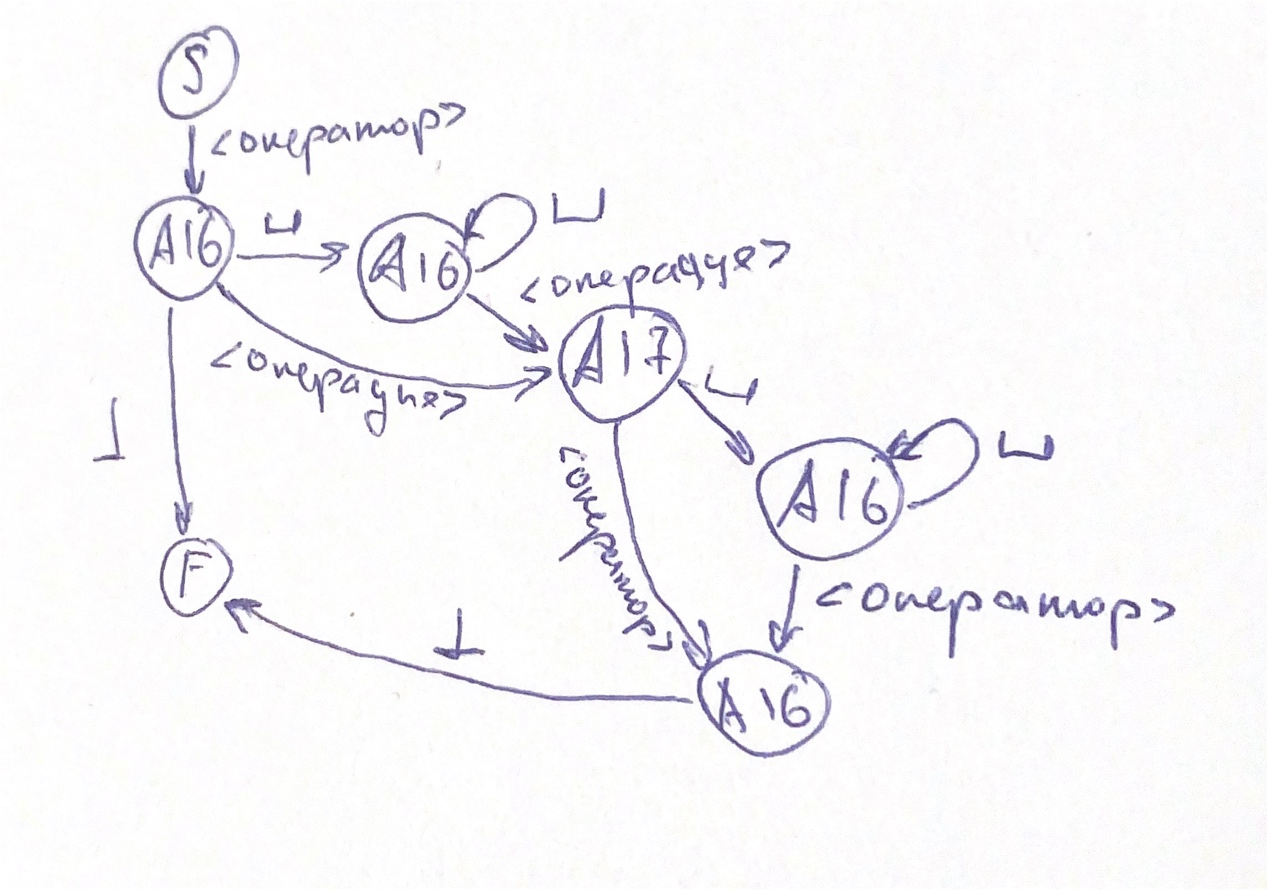 S
<оператор>
A16
␣
A16
␣
<операция>
<операция>
A17
␣
⊥
<оператор>
A16
␣
F
<оператор>
⊥
A16